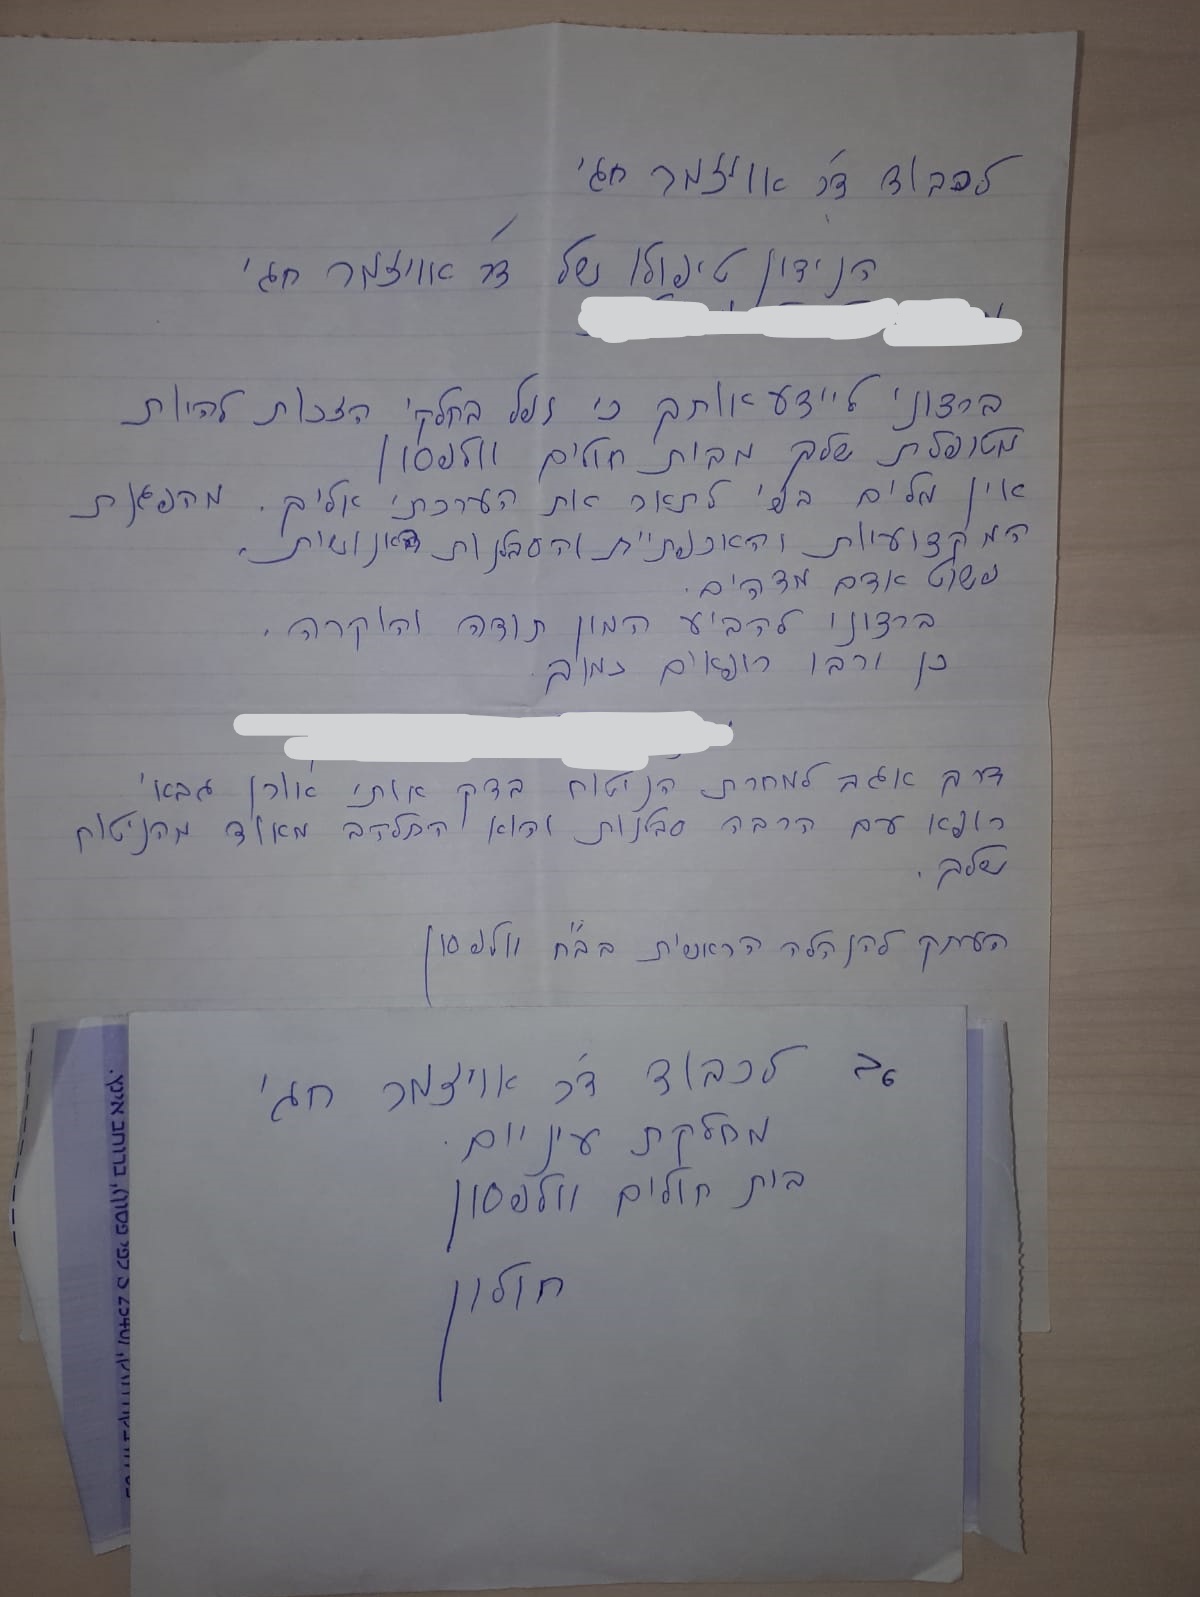 לכבוד ד"ר אוויזמר חגי
הנידון טיפולו של ד"ר אוויזמר חגי
ברצוני ליידע אותך כי נפל בחלקי הזכות להיות
מטופלת שלך מבית חולים וולפסון
אין מלים בפי לתאר את הערכתי אליך. מהפגנת
המקצועיות והאכפתיית והסבלנות האנושית.
פשוט אדם מדהים.
ברצוני להביע המון תודה והוקרה.
כן ירבו רופאים כמוך.
דרך אגב למחרת הניטוח בדק אותי אורן גבאי
רופא עם הרבה סבלנות והוא התלהב מאוד מהניטוח
שלך.
העתק להנהלה הראשית בב"ח וולפסון
לכבוד ד"ר אויזמר חגי
מחלקת עיניים.
בית חולים וולפסון
חולון